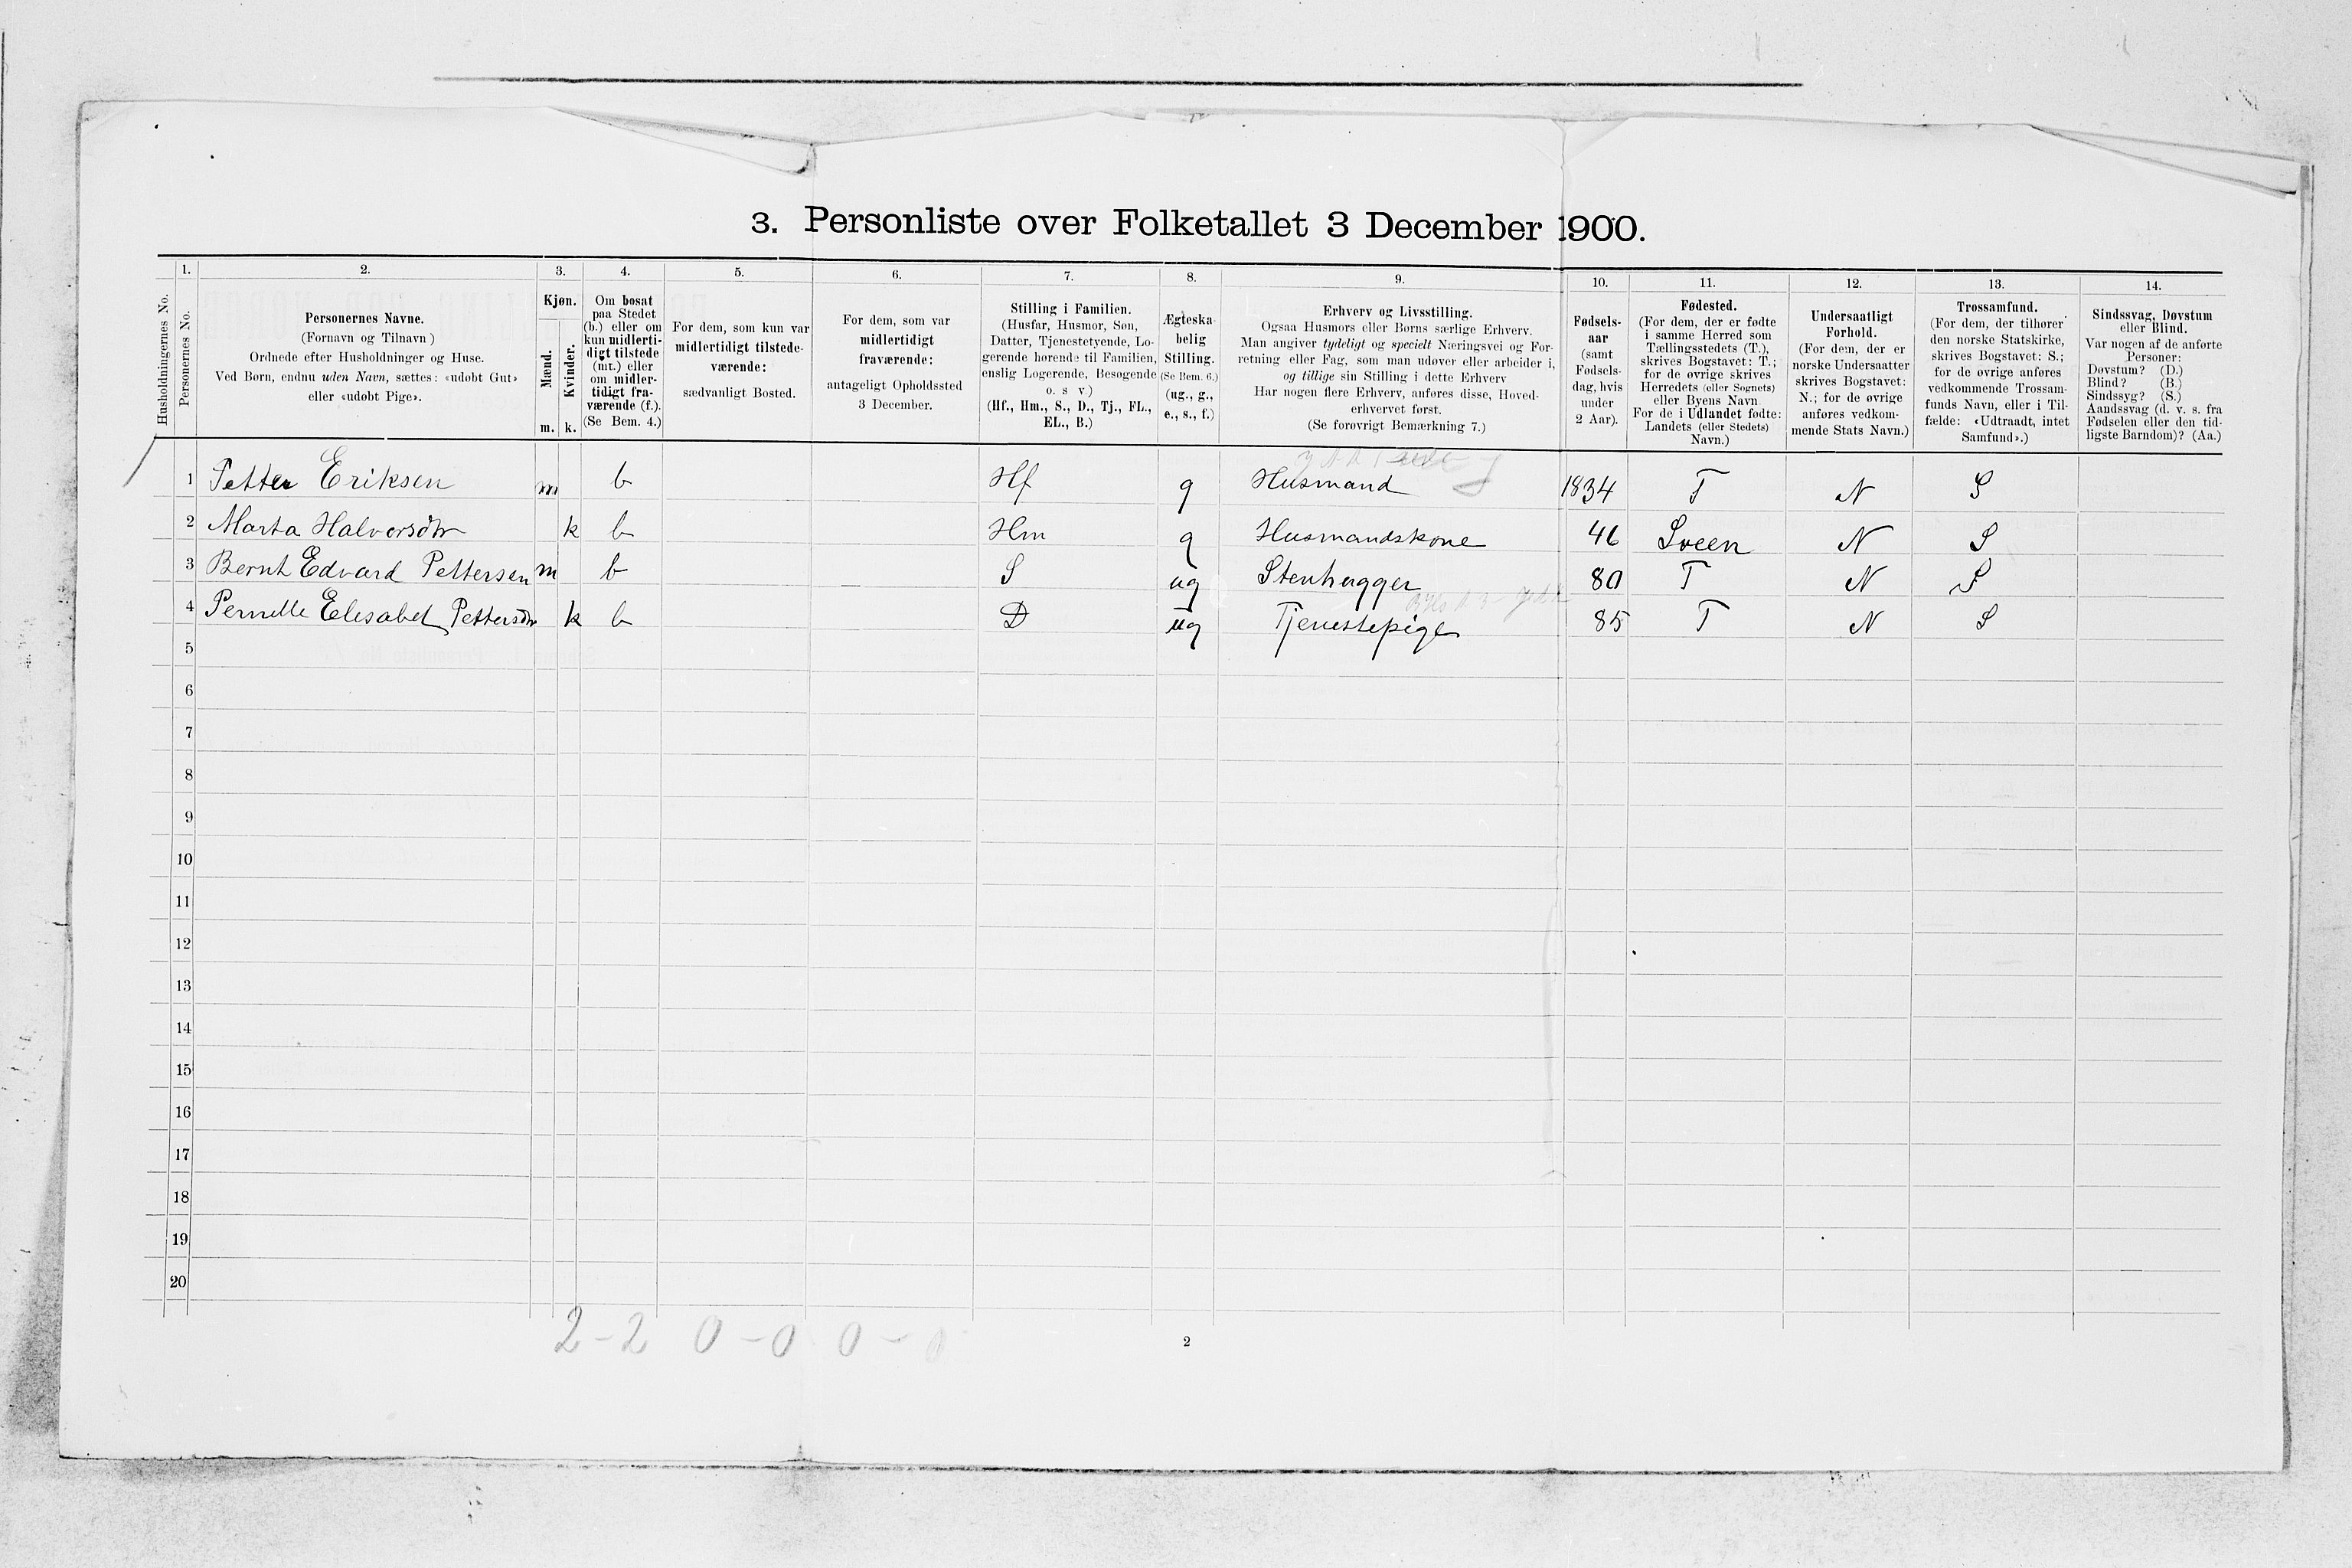 3. Personliste over Folketallet 3 December 1900.
1. 2. 3. 4. 5. 6. 7. 8. 9. 10. 11. 12. 13. 14.
Husholdningernes No.
Personernes No.
Personernes Navne.
(Fornavn og Tilnavn)
Ordnede efter Husholdninger og Huse.
Ved Børn, endnu uden Navn, sættes: «udøbt Gut»
eller «udøbt Pige».
Kjøn.
Mænd.
Kvinder.
m. k.
Om bosat
paa Stedet
(b.) eller om
kun midlerti-
digt tilstede
(mt.) eller
om midler-
tidigt fra-
værende (f.).
(Se Bem. 4.)
For dem, som kun var
midlertidigt tilstede-
værende:
sædvanligt Bosted.
For dem, som var
midlertidigt
fraværende:
antageligt Opholdssted
3 December.
Stilling i Familien.
(Husfar, Husmor, Søn,
Datter, Tjenestetyende, Lo-
gerende hørende til Familien,
enslig Logerende, Besøgende
o. s v.)
(Hf., Hm., S., D., Tj., FL.,
EL., B.)
Ægteska-
belig
Stilling.
(Se Bem. 6.)
(ug., g.,
e., s., f.)
Erhverv og Livsstilling.
Ogsaa Husmors eller Børns særlige Erhverv.
Man angiver tydeligt og specielt Næringsvei og For-
retning eller Fag, som man udøver eller arbeider i,
og tillige sin Stilling i dette Erhverv
Har nogen flere Erhverv, anføres disse, Hoved-
erhvervet først.
(Se forøvrigt Bemærkning 7.)
Fødsels-
aar
(samt
Fødsels-
dag, hvis
under
2 Aar).
Fødested.
(For dem, der er fødte
i samme Herred som
Tællingsstedets (T.),
skrives Bogstavet: T.;
for de øvrige skrives
Herredets (eller Sognets)
eller Byens Navn
For de i Udlandet fødte:
Landets (eller Stedets)
Navn.)
Undersaatligt
Forhold.
(For dem, der er
norske Undersaatter
skrives Bogstavet:
N.; for de øvrige
anføres vedkom-
mende Stats Navn.)
Trossamfund.
(For dem, der tilhører
den norske Statskirke,
skrives Bogstavet: S.;
for de øvrige anføres
vedkommende Trossam-
funds Navn, eller i Til-
fælde: «Udtraadt, intet
Samfund».)
Sindssvag, Døvstum
eller Blind.
Var nogen af de anførte
Personer:
Døvstum? (D.)
Blind? (B.)
Sindssyg? (S.)
Aandssvag (d. v. s. fra
Fødselen eller den tid-
ligste Barndom)? (Aa.)
1 Petter Eriksen m b Hf g Husmand 1834 T N S
2 Marta Halvorsdtr k b Hm g Husmandskone 46 Sveen N S
3 Bernt Edvard Pettersen m b S ug Stenhugger 80 T N S
4 Pernille Elesabet Pettersdtr k b D ug Tjenestepige 85 T N S
5
6
7
8
9
10
11
12
13
14
15
16
17
18
19
20
2-2 0-0 0-0
2